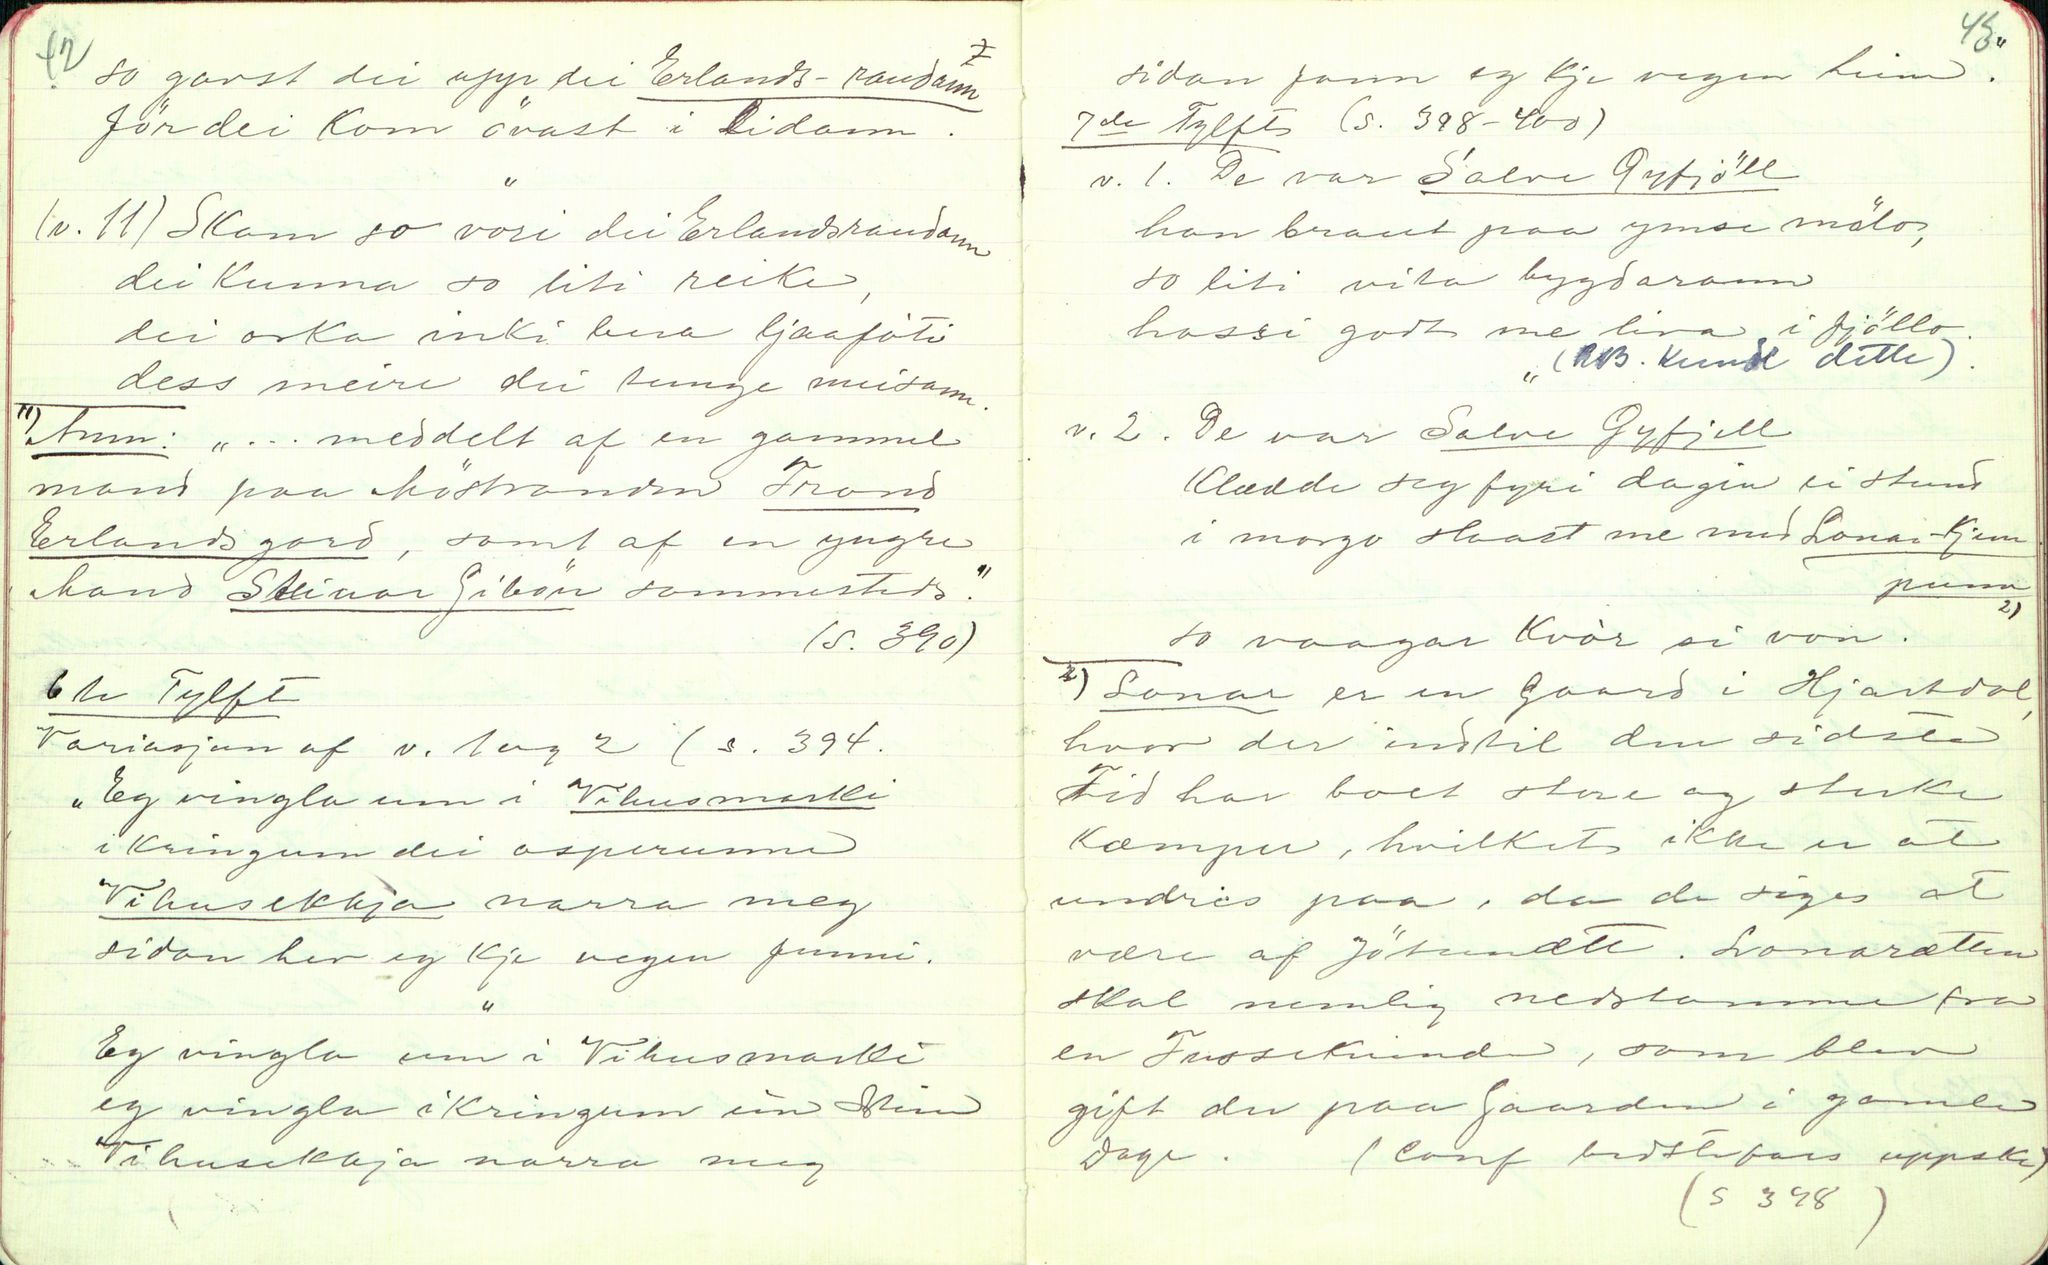 42
so gavst dei upp dei Erlands-raudann
før dei kom övast i Lidann.
"
(v. 11) Skam so vöri dei Erlandsraudann
dei kunna so liti reike,
dei orka inki bera ljaaföti
dess meire dei tunge meisann.
11) Anm: "... meddelt af en gammel
mand paa Möstranden Trond
Erlandsgard, samt af en yngre
Mand Steinar Gibön sammesteds."
(s. 390)
6te Tylft
Variasjon af v. 1 og 2 (s. 394.
"Eg vingla um i Vihusmarki
ikringum dei asperunne
Vihusekkja narra meg
sidan hev eg kje vegen funni.
"
Eg vingla um i Vihusmarki
eg vingla ikringum ein Stein
Vihusekkja narra meg
43
sidan fann eg kje vegen heim.
7de Tylft (s. 398-400)
v. 1. De var Salve Gyfjöll
han braut paa ymse mälo,
so liti vita bygdarann
hossi godt me liva i fjöllo.
" (RB. kunde dette).
v. 2. De var Salve Gyfjell
Klædde seg fyri dagin ei stund
i morgo slaast me med Lonar-kjem
punn 2)
so vaagar kvör si von.
2) Lonar er en Gaard i Hjartdal,
hvor der indtil den sidste
Tid har boet store og sterke
Kæmper, hvilket ikke er at
undres paa, da de siges at
være af Jötunætt. Lonarætten
skal nemlig nedstamme fra
en Tussekunde, som blev
gift der paa Gaarden i gamle
Dage. (Conf bedstefars uppskr)
(s 398)